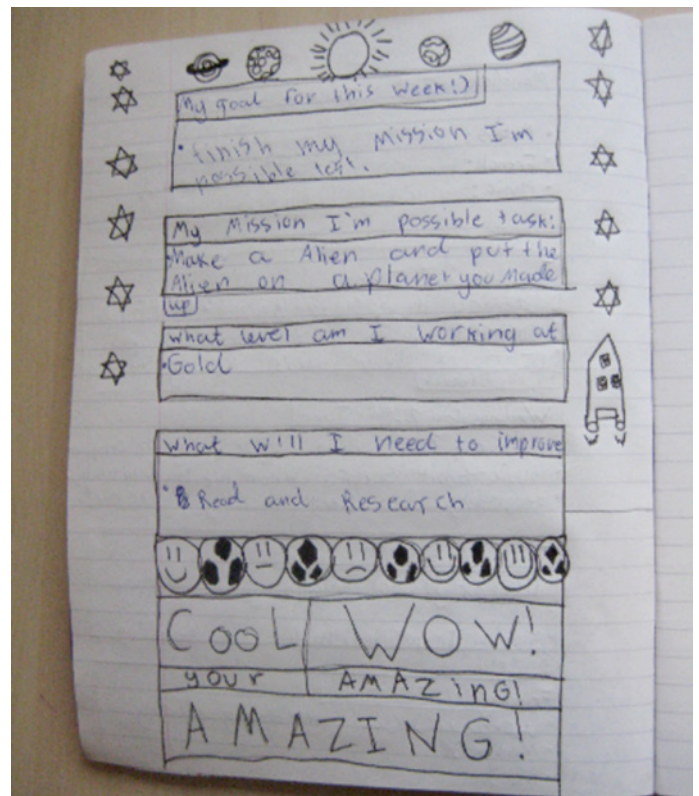 My goal for this week!:)
• finish my Mission I'm
possible test.
My Mission I'm possible task:
•Make a Alien and put the
Alien on a planet you Made
up
what level am I working at
•Gold
What will I need to improve
• Read and Research
COOL WOW!
your AMAZinG!
AMAZING!